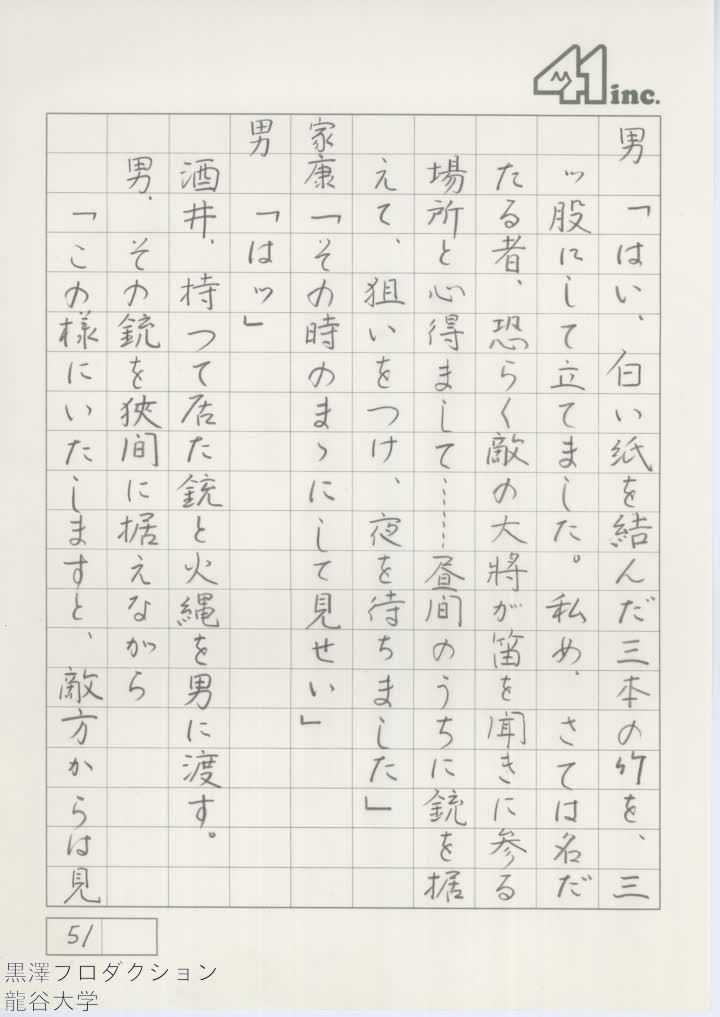 41 inc.
男「はい、白い紙を結んだ三本の竹を、三
ッ股にして立てました。私め、さては名だ
たる者、恐らく敵の大將が笛を聞きに参る
場所と心得まして……昼間のうちに銃を据
えて、狙いをつけ、夜を待ちました」
家康「その時のまゝにして見せい」
男「はッ」
酒井、持つて居た銃と火縄を男に渡す。
男、その銃を狹間に据えながら
「この様にいたしますと、敵方からは見
51
黒澤プロダクション
龍谷大学